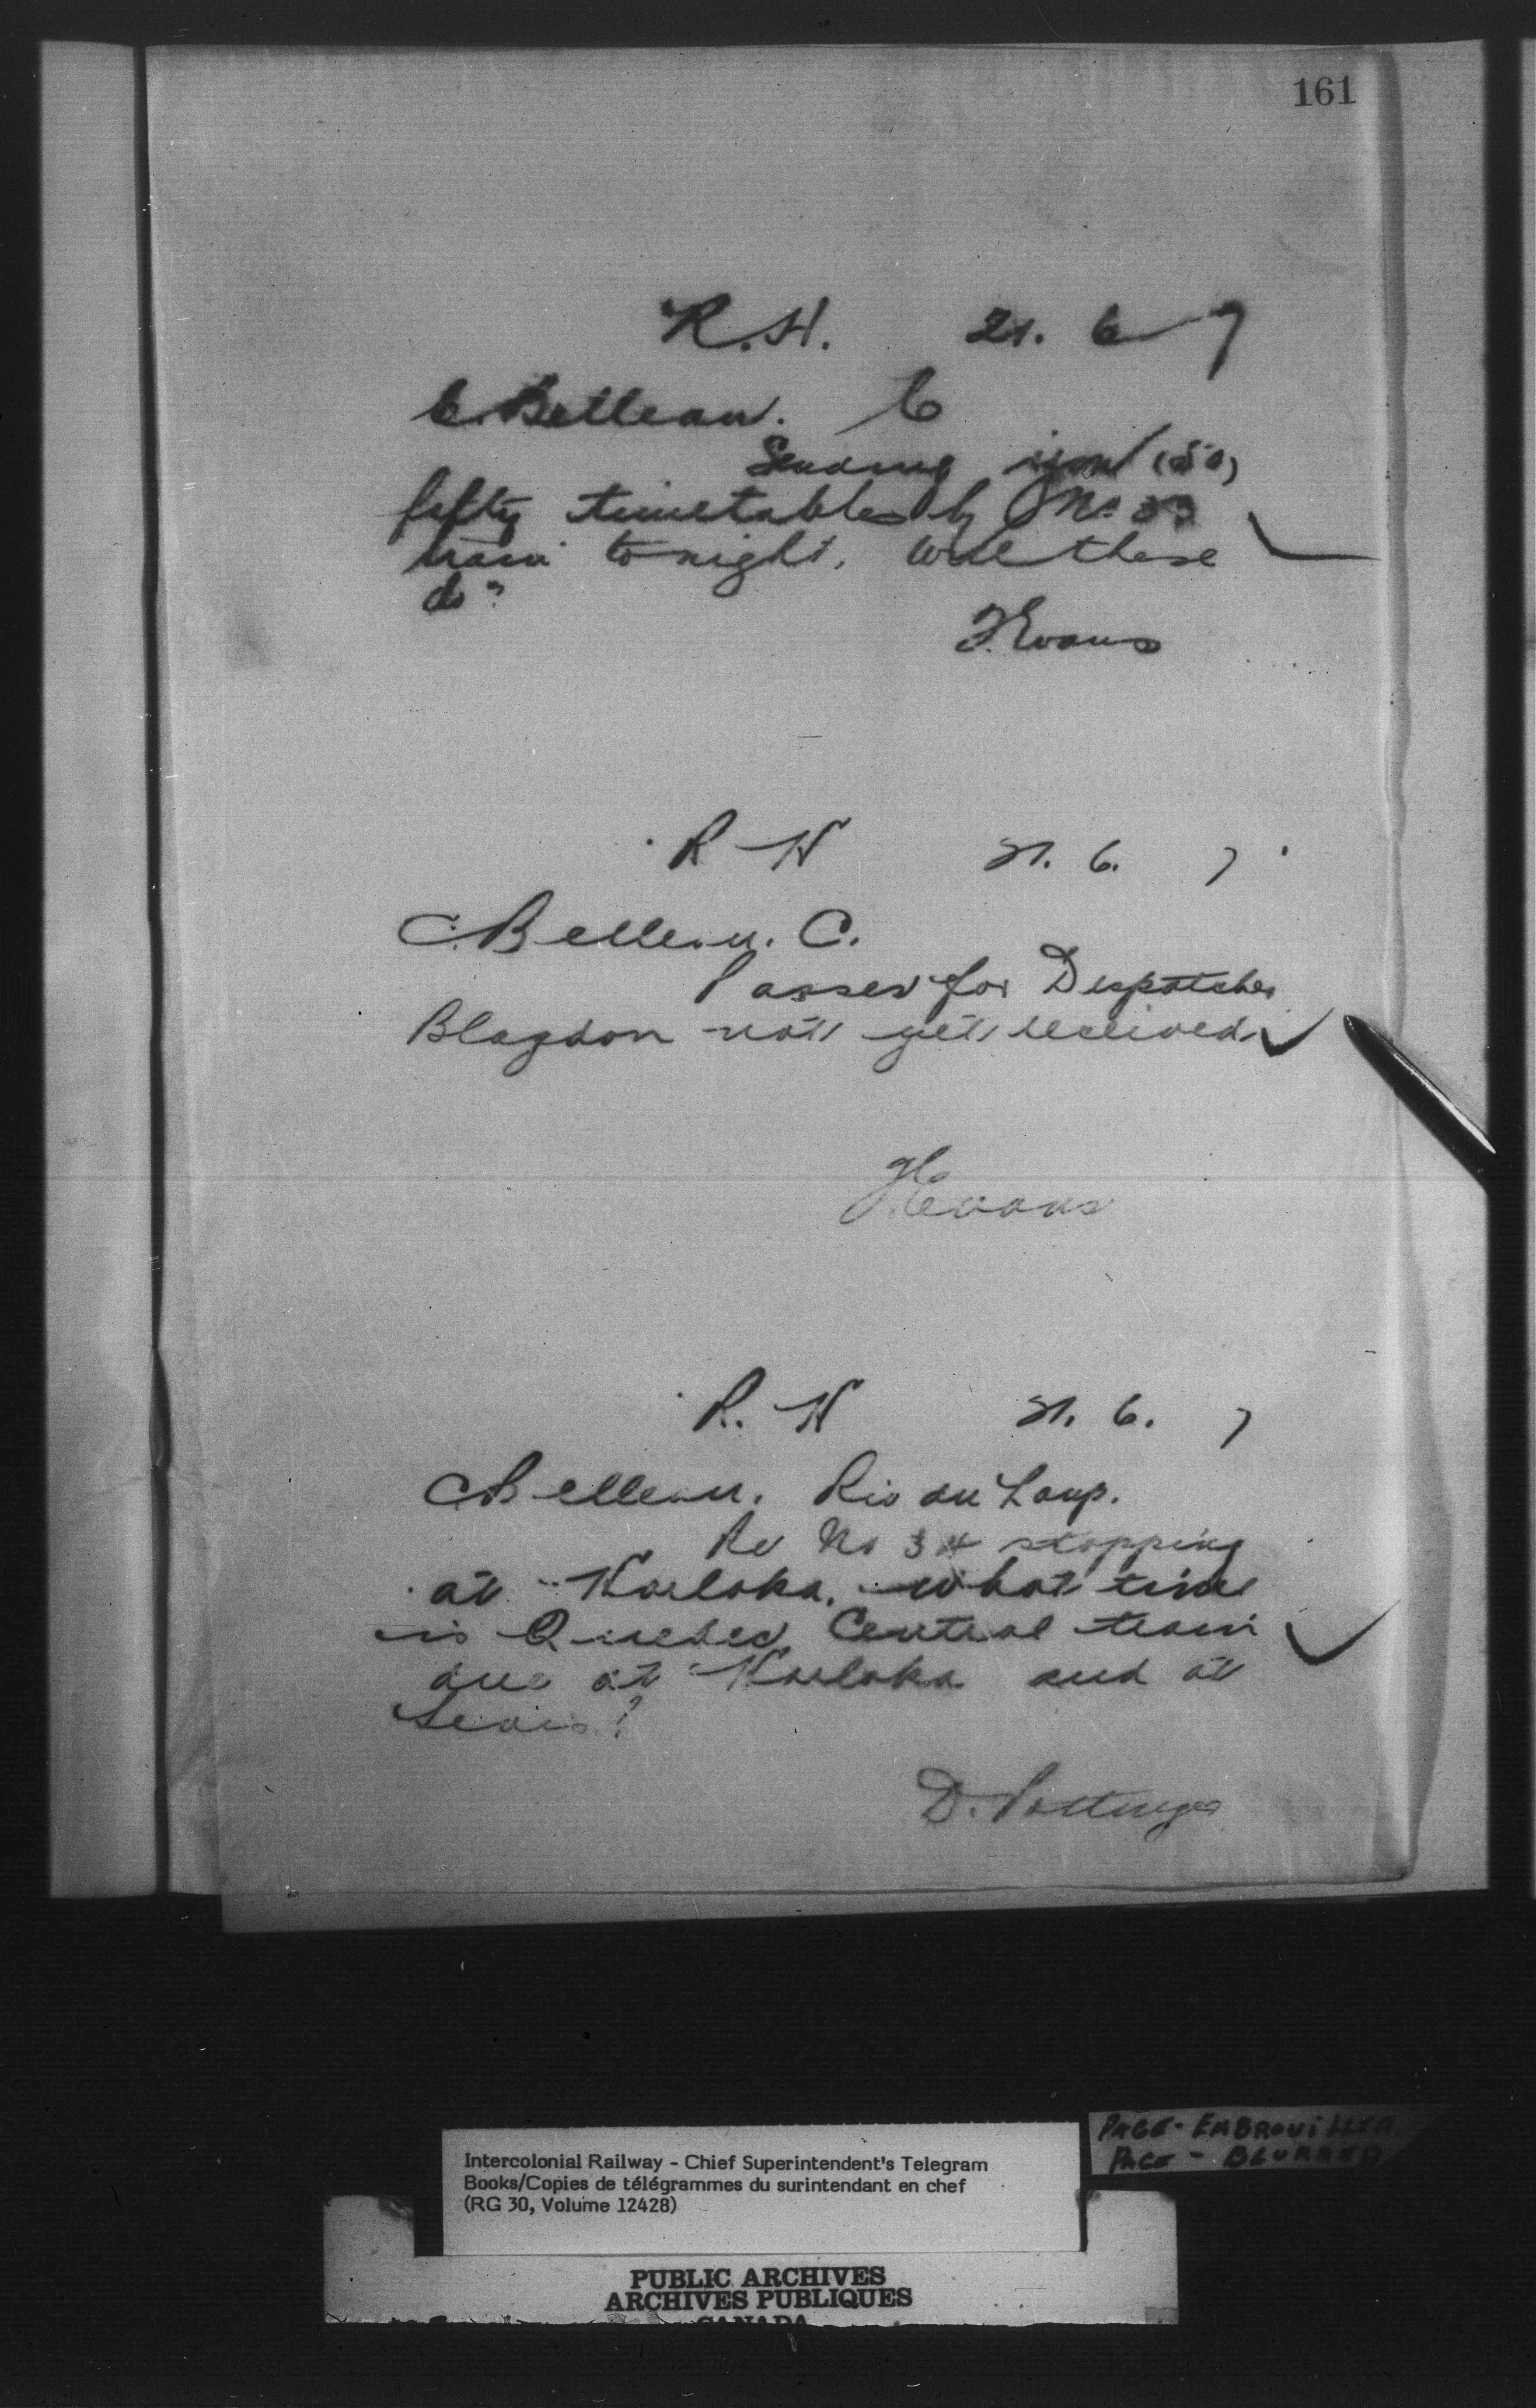 161
R.H. 21. 6 7
C. Belleau. C
Sending you (50)
fifty timetables by No 33
train to night. Will these
do?
J. Evans
R H 21. 6. 7
C. Belleau. C.
Passes for Despatcher
Blagdon not yet received
J. Evans
R. H 21. 6. 7
C Belleau. Riv du Loup.
Re No 34 stopping
at Harlaka, what time
is Quebec Central train
due at Harlaka and at
Levis?
D. Pottinger
PAGE - EMBROUILLER
PAGE - BLURRED
Intercolonial Railway - Chief Superintendent's Telegram
Books/Copies de télégrammes du surintendant en chef
(RG 30, Volume 12428)
PUBLIC ARCHIVES
ARCHIVES PUBLIQUES
CANADA